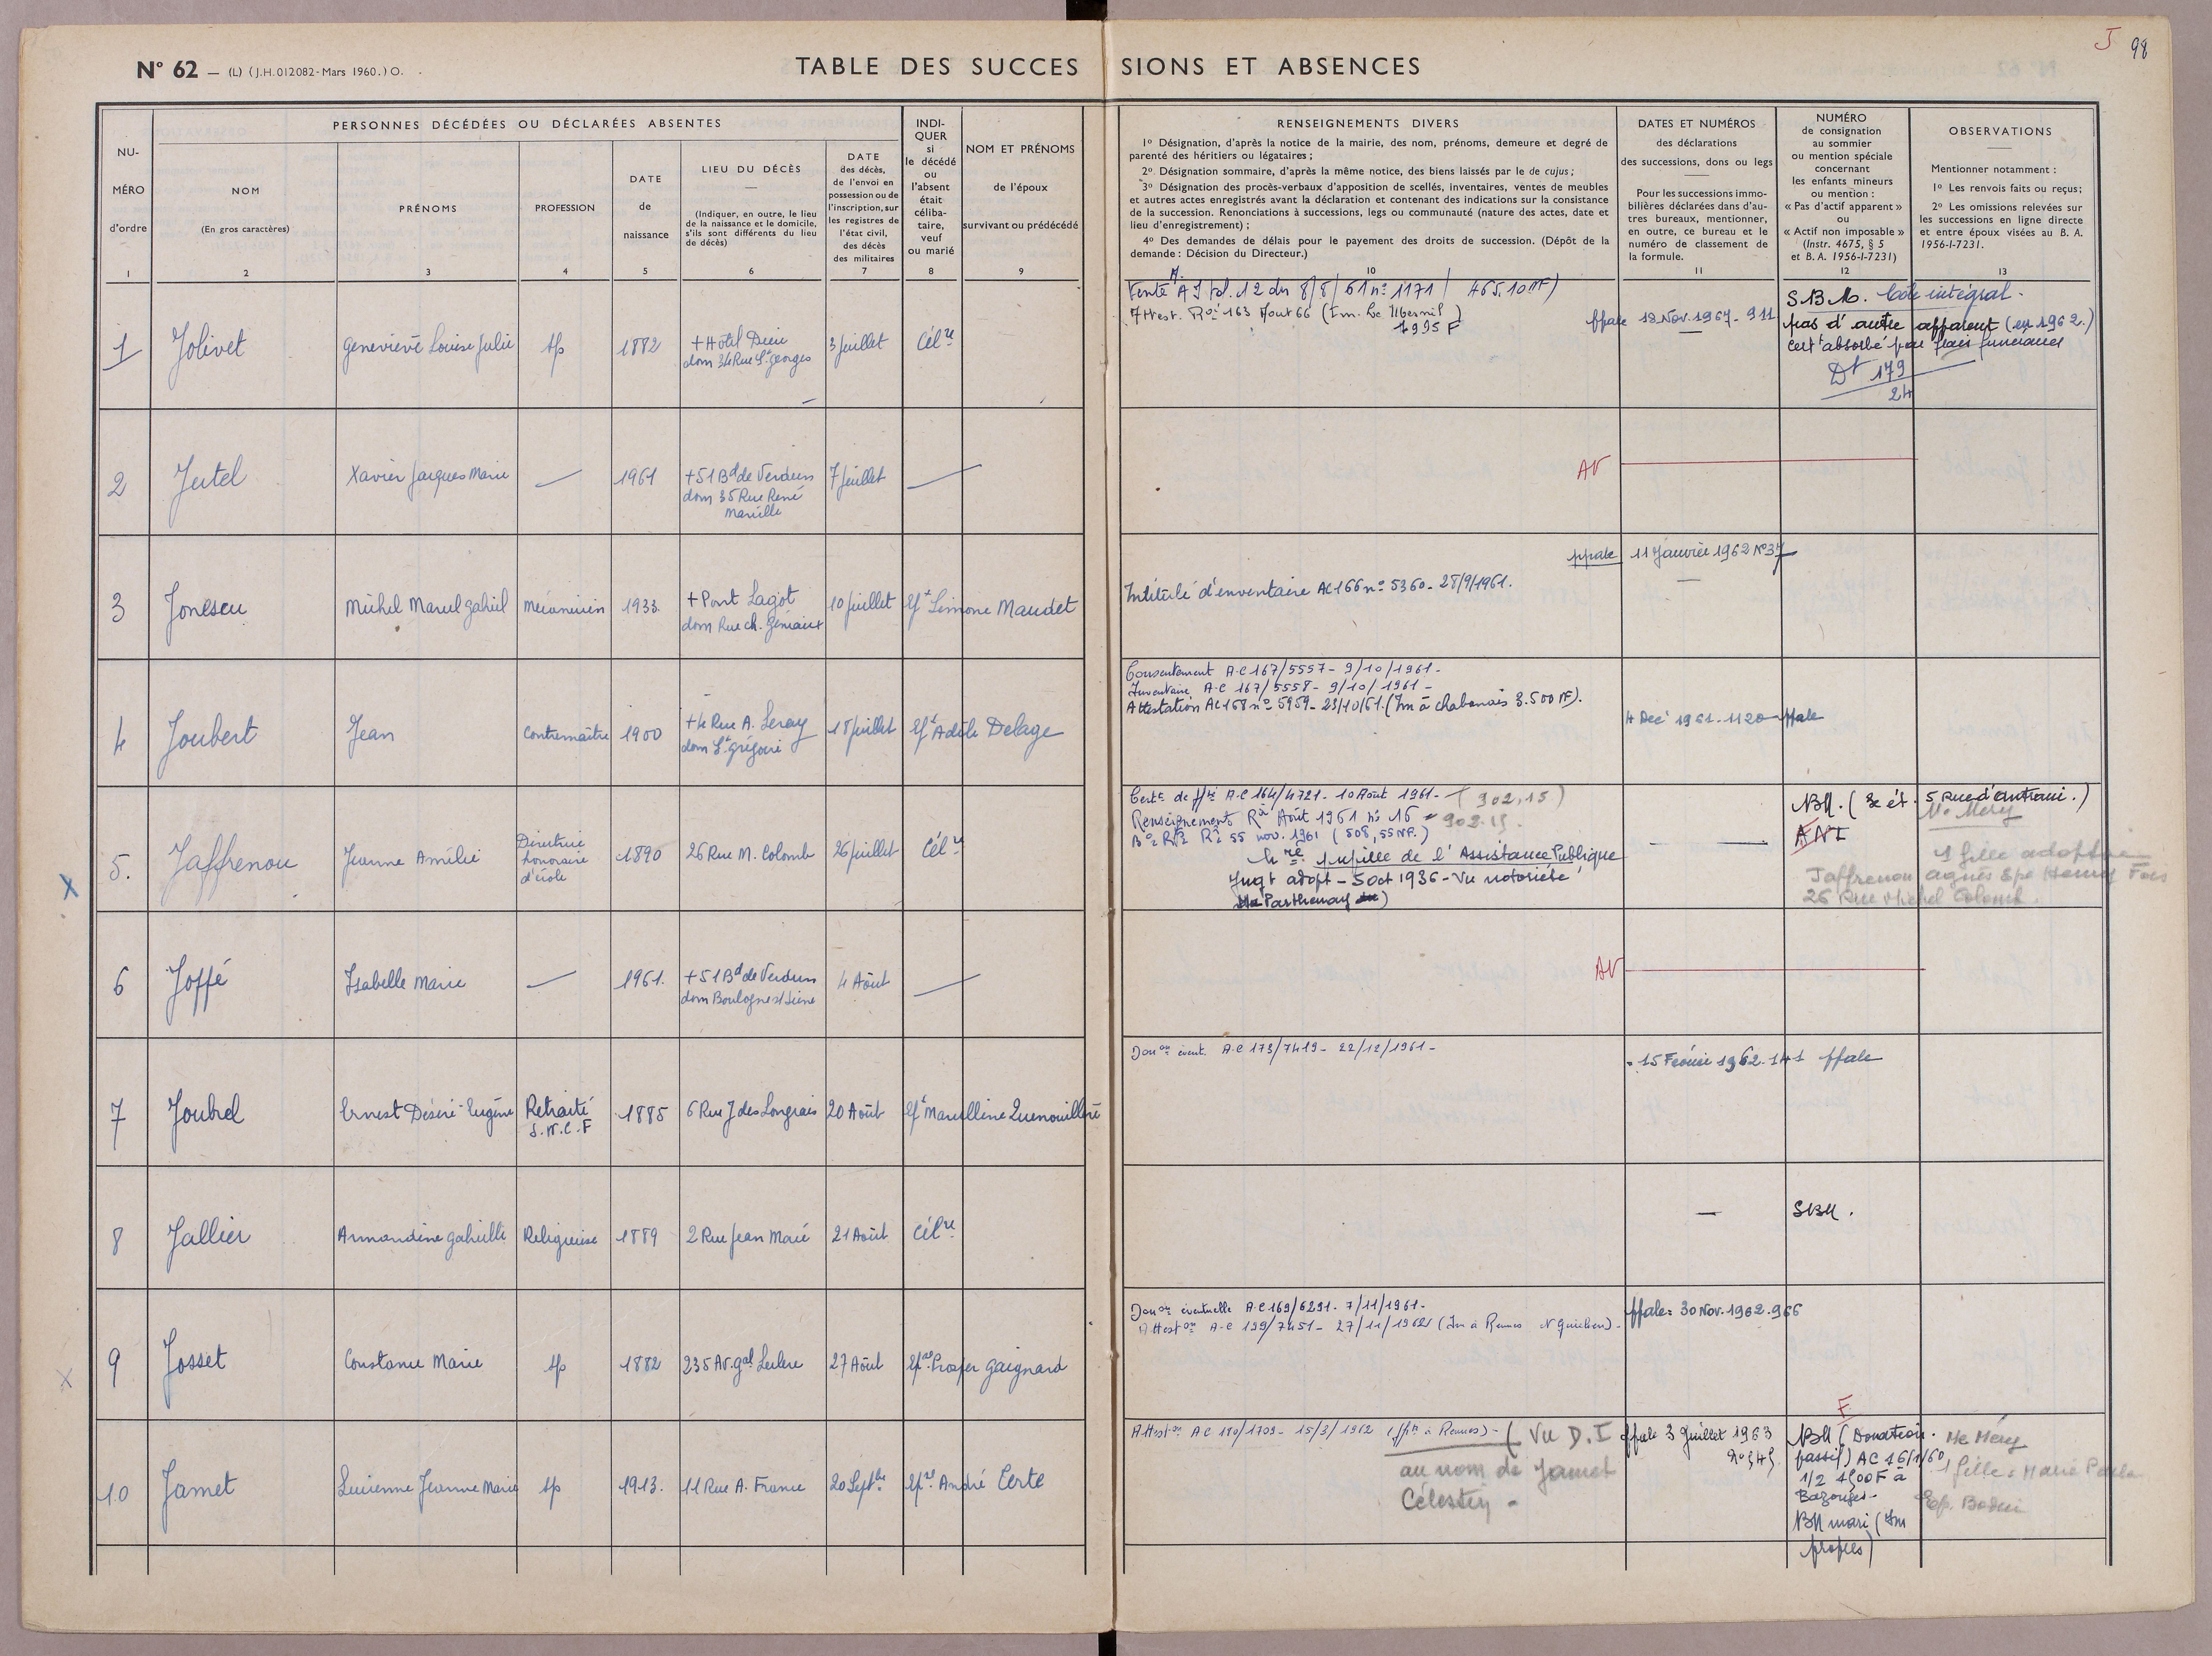 J 98
N° 62 — (L) (J.H.012082-Mars 1960.) O.
TABLE DES SUCCESSIONS ET ABSENCES
NU-
MÉRO
d'ordre
1
PERSONNES DÉCÉDÉES OU DÉCLARÉES ABSENTES
NOM
(En gros caractères)
2
PRÉNOMS
3
PROFESSION
4
DATE
de
naissance
5
LIEU DU DÉCÈS
(Indiquer, en outre, le lieu
de la naissance et le domicile,
s'ils sont différents du lieu
de décès)
6
DATE
des décès,
de l'envoi en
possession ou de
l'inscription, sur
les registres de
l'état civil,
des décès
des militaires
7
INDI-
QUER
si
le décédé
ou
l'absent
était
céliba-
taire,
veuf
ou marié
8
NOM ET PRÉNOMS
de l'époux
survivant ou prédécédé
9
RENSEIGNEMENTS DIVERS
1° Désignation, d'après la notice de la mairie, des nom, prénoms, demeure et degré de
parenté des héritiers ou légataires ;
2° Désignation sommaire, d'après la même notice, des biens laissés par le de cujus ;
3° Désignation des procès-verbaux d'apposition de scellés, inventaires, ventes de meubles
et autres actes enregistrés avant la déclaration et contenant des indications sur la consistance
de la succession. Renonciations à successions, legs ou communauté (nature des actes, date et
lieu d'enregistrement) ;
4° Des demandes de délais pour le payement des droits de succession. (Dépôt de la
demande : Décision du Directeur.)
10
DATES ET NUMÉROS
des déclarations
des successions, dons ou legs
Pour les successions immo-
bilières déclarées dans d'au-
tres bureaux, mentionner,
en outre, ce bureau et le
numéro de classement de
la formule.
11
NUMÉRO
de consignation
au sommier
ou mention spéciale
concernant
les enfants mineurs
ou mention :
« Pas d'actif apparent »
ou
« Actif non imposable »
(Instr. 4675, § 5
et B. A. 1956-I-7231)
12
OBSERVATIONS
Mentionner notamment :
1° Les renvois faits ou reçus;
2° Les omissions relevées sur
les successions en ligne directe
et entre époux visées au B. A.
1956-I-7231.
13
1 Jolivet Geneviève Louise Julie sp 1882
+ Hôtel Dieu
dom 34 Rue St Georges
3 juillet Célre
Vente AJ 12 du 8/8/61 n° 1171 / 465,10 NF)
Attest. 163 Aout 66
1995 F
ppale 18 Nov. 1967 - 911
S.B.M. Côte intégral.
pas d'autre apparent (en 1962.)
absorbé par frais funéraires
Dt 179
24
2 Jutel Xavier Jacques Marie — 1961
+ 51 Bd de Verdun
dom 35 Rue René
Marcille
7 juillet —
AV
3 Jonescu Michel Marcel Gabriel mécanicien 1933
+ Pont Lagot
dom Rue Ch. Géniaux
10 juillet Ef Simone Maudet
Intitulé d'inventaire AC 166 n° 5360 - 28/9/1961.
ppale 11 Janvier 1962 N° 37
4 Joubert Jean contremaître 1900
+ 4 Rue A. Leray
dom St Grégoire
18 juillet Ef Adèle Delage
Consentement A.C 167/5557 - 9/10/1961 -
Inventaire A.C 167/5558 - 9/10/1961 -
Attestation AC 168 n° 5959 - 23/10/61. (Im à chabanais 3.500 NF).
4 Dec 1961 - 1120 ppale
5. Jaffrenou Jeanne Amélie
Directrice
honoraire
d'école
1890 26 Rue M. Colomb 26 juillet Célre
A.C 164/4721 - 10 Août 1961 - (902,15)
Renseignement Août 1961 n° 16 - 902.15.
55 nov. 1961 (508,55 NF.)
pupille de l'Assistance Publique
Jugt adopt - 5 oct 1936 - Vu notoriété
Parthenay
— —
NBM. (3e ét. 5 Rue d'antrain.)
ANI
Me Mery
1 fille adoptive
Jaffrenou agnès Epe
26 Rue Michel Colomb.
6 Joffé Isabelle Marie — 1961.
+ 51 Bd de Verdun
dom Boulogne s/ Seine
4 Août —
AV
7 Joubrel Ernest Désiré Eugène
Retraité
S.N.C.F
1885 6 Rue J des Longrais 20 Août Ef Marcelline Quenouillère
Donon évent. A.C 173/7419 - 22/12/1961 -
15 Février 1962 - 141 ppale
8 Jallier Armandine Gabrielle Religieuse 1889 2 Rue Jean Macé 21 Août Célre
— SBM.
9 Josset Constance Marie sp 1882 235 Av. gal Leclerc 27 Août Prosper Gaignard
Donon éventuelle A.C 169/6291 - 7/11/1961 -
Atteston A.C 199/7451 - 27/11/1962 (Im à Rennes
ppale: 30 Nov. 1962. 966
10 Jamet Lucienne Jeanne Marie sp 1913. 11 Rue A. France 20 Septbre André Certe
Atteston AC 180/1709 - 15/3/1962 à Rennes) - (Vu D.I
au nom de Jamet
Célestin -
ppale 3 Juillet 1963
n° 545
F
NBM (Donation
passif) AC 16/1/60
1/2 à
Bazouges -
NBM mari (Im
propres)
Me Méry
1 fille: Marie
Ep.